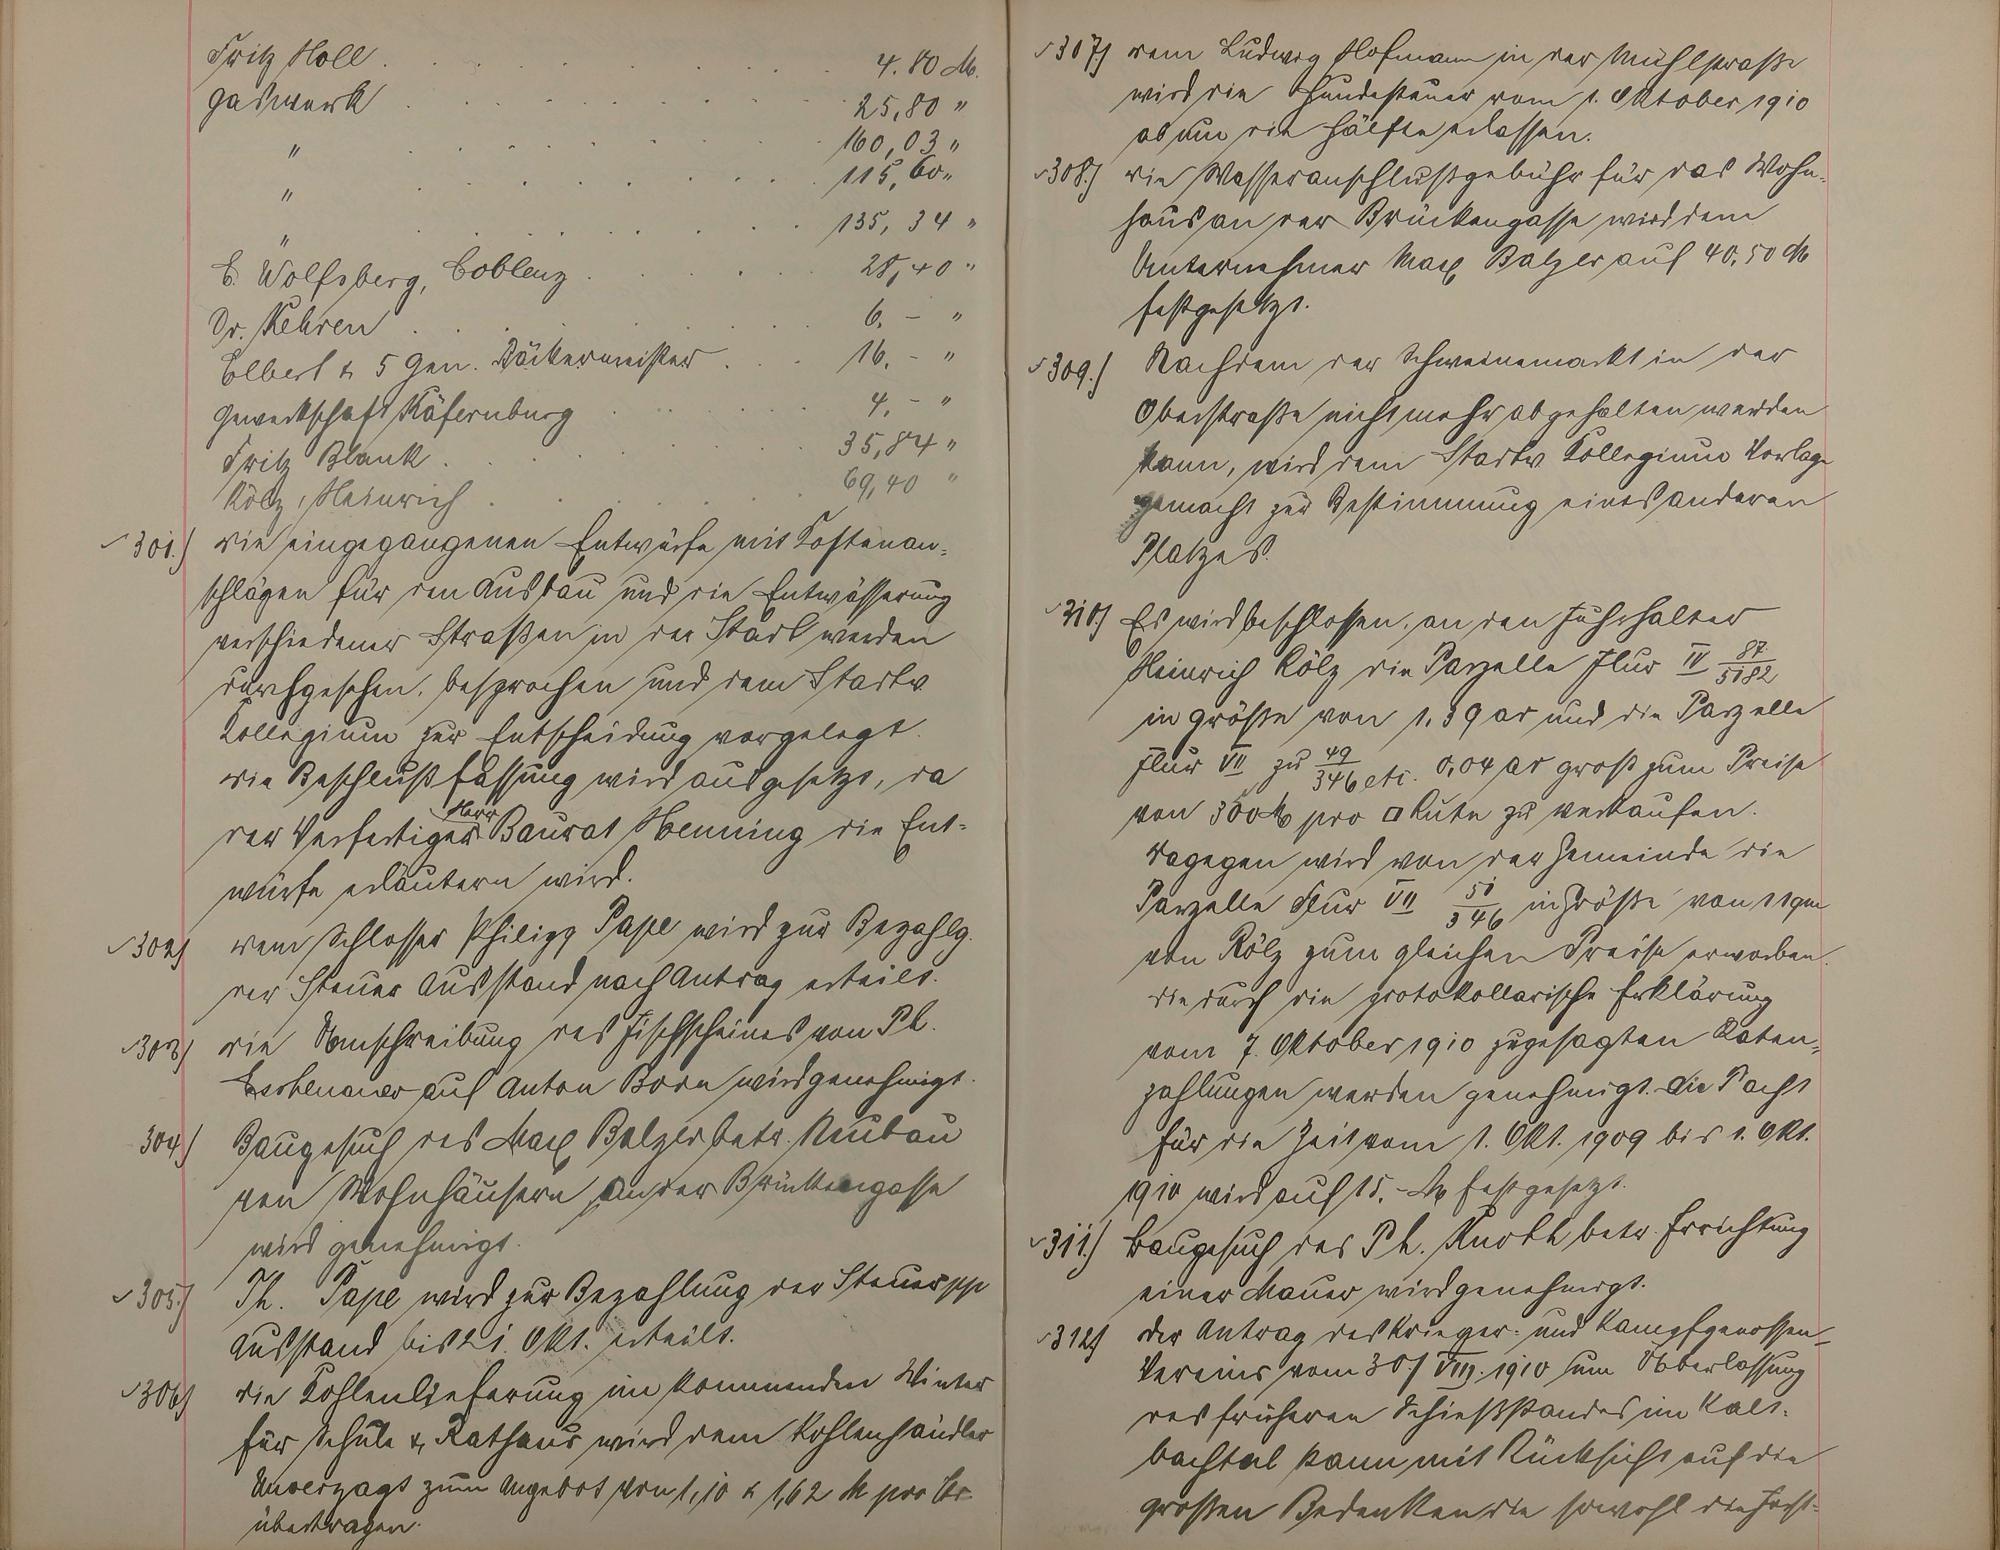 Fritz Noll . . . . 4.80 M.
Gaswerk . . . . 25,80 "
" . . . . 160,03 "
" . . . . 115,60 "
" . . . . 135,34 "
E. Wolfsberg, Coblenz . . . . 28,40 "
Dr. Kehren . . . . 6. – "
Elbert & 5 Gen. Bäckermeister . . . 16. – "
Gewerkschaft Käfernburg . . . . 4. – "
Fritz Blank . . . . 35,84 "
Kölz, Heinrich . . . . 69,40 "
301.) die eingegangenen Entwürfe mit Kostenan-
schlägen für den Ausbau und die Entwässerung
verschiedener Straßen in der Stadt werden
durchgesehen, besprochen und dem Stadtv.
Kollegium zur Entscheidung vorgelegt.
die Beschlußfassung wird ausgesetzt, da
der Verfertiger Herr Baurat Henning die Ent-
würfe erläutern wird.
302) dem Schlosser Philipp Pape wird zur Bezahlg.
der Steuer Ausstand nach Antrag erteilt.
303) die Umschreibung des Fischscheines von Ph.
auf Anton Born wird genehmigt.
304) Baugesuch des Max Balzer betr. Neubau
von Wohnhäusern an der Brückengasse
wird genehmigt.
305.) Th. Pape wird zur Bezahlung der Steuer pp
Ausstand bis 21. Okt. erteilt.
306) die Kohlenlieferung im kommenden Winter
für Schule & Rathaus wird dem Kohlenhändler
Unverzagt zum Angebot von 1,10 & 1,62 M pro Ctr
übertragen.
307.) dem Ludwig Hofmann in der Mühlstraße
wird die Hundesteuer vom 1. Oktober 1910
ab um die Hälfte erlassen.
308.) die Wasseranschlußgebühr für das Wohn-
haus an der Brückengasse wird dem
Unternehmer Max Balzer auf 40,50 M
festgesetzt.
309.) Nachdem der Schweinemarkt in der
Oberstraße nicht mehr abgehalten werden
kann, wird dem Stadtv. Kollegium Vorlage
gemacht zur Bestimmung eines anderen
Platzes.
310.) Es wird beschlossen, an den Fuhrhalter
Heinrich Kölz die Parzelle Flur IV 87/5182
in Größe von 1,39 ar und die Parzelle
Flur VII zu 49/346 etc. 0,04 ar groß zum Preise
von 300 M pro □ Rute zu verkaufen.
dagegen wird von der Gemeinde die
Parzelle Flur VII 51/346 in Größe von 11 qm
von Kölz zum gleichen Preise erworben.
die durch die protokollarische Erklärung
vom 7. Oktober 1910 zugesagten Raten-
zahlungen werden genehmigt. Die Pacht
für die Zeit vom 1. Okt. 1909 bis 1. Okt.
1910 wird auf 15. – M festgesetzt.
311.) Baugesuch des Ph. Knoth betr. Errichtung
einer Mauer wird genehmigt.
312) der Antrag des Krieger- und Kampfgenossen-
Vereins vom 30/VIII. 1910 um Überlassung
des früheren Schießstandes im Kalt-
bachtal kann mit Rücksicht auf die
großen Bedenken die sowohl die Forst-